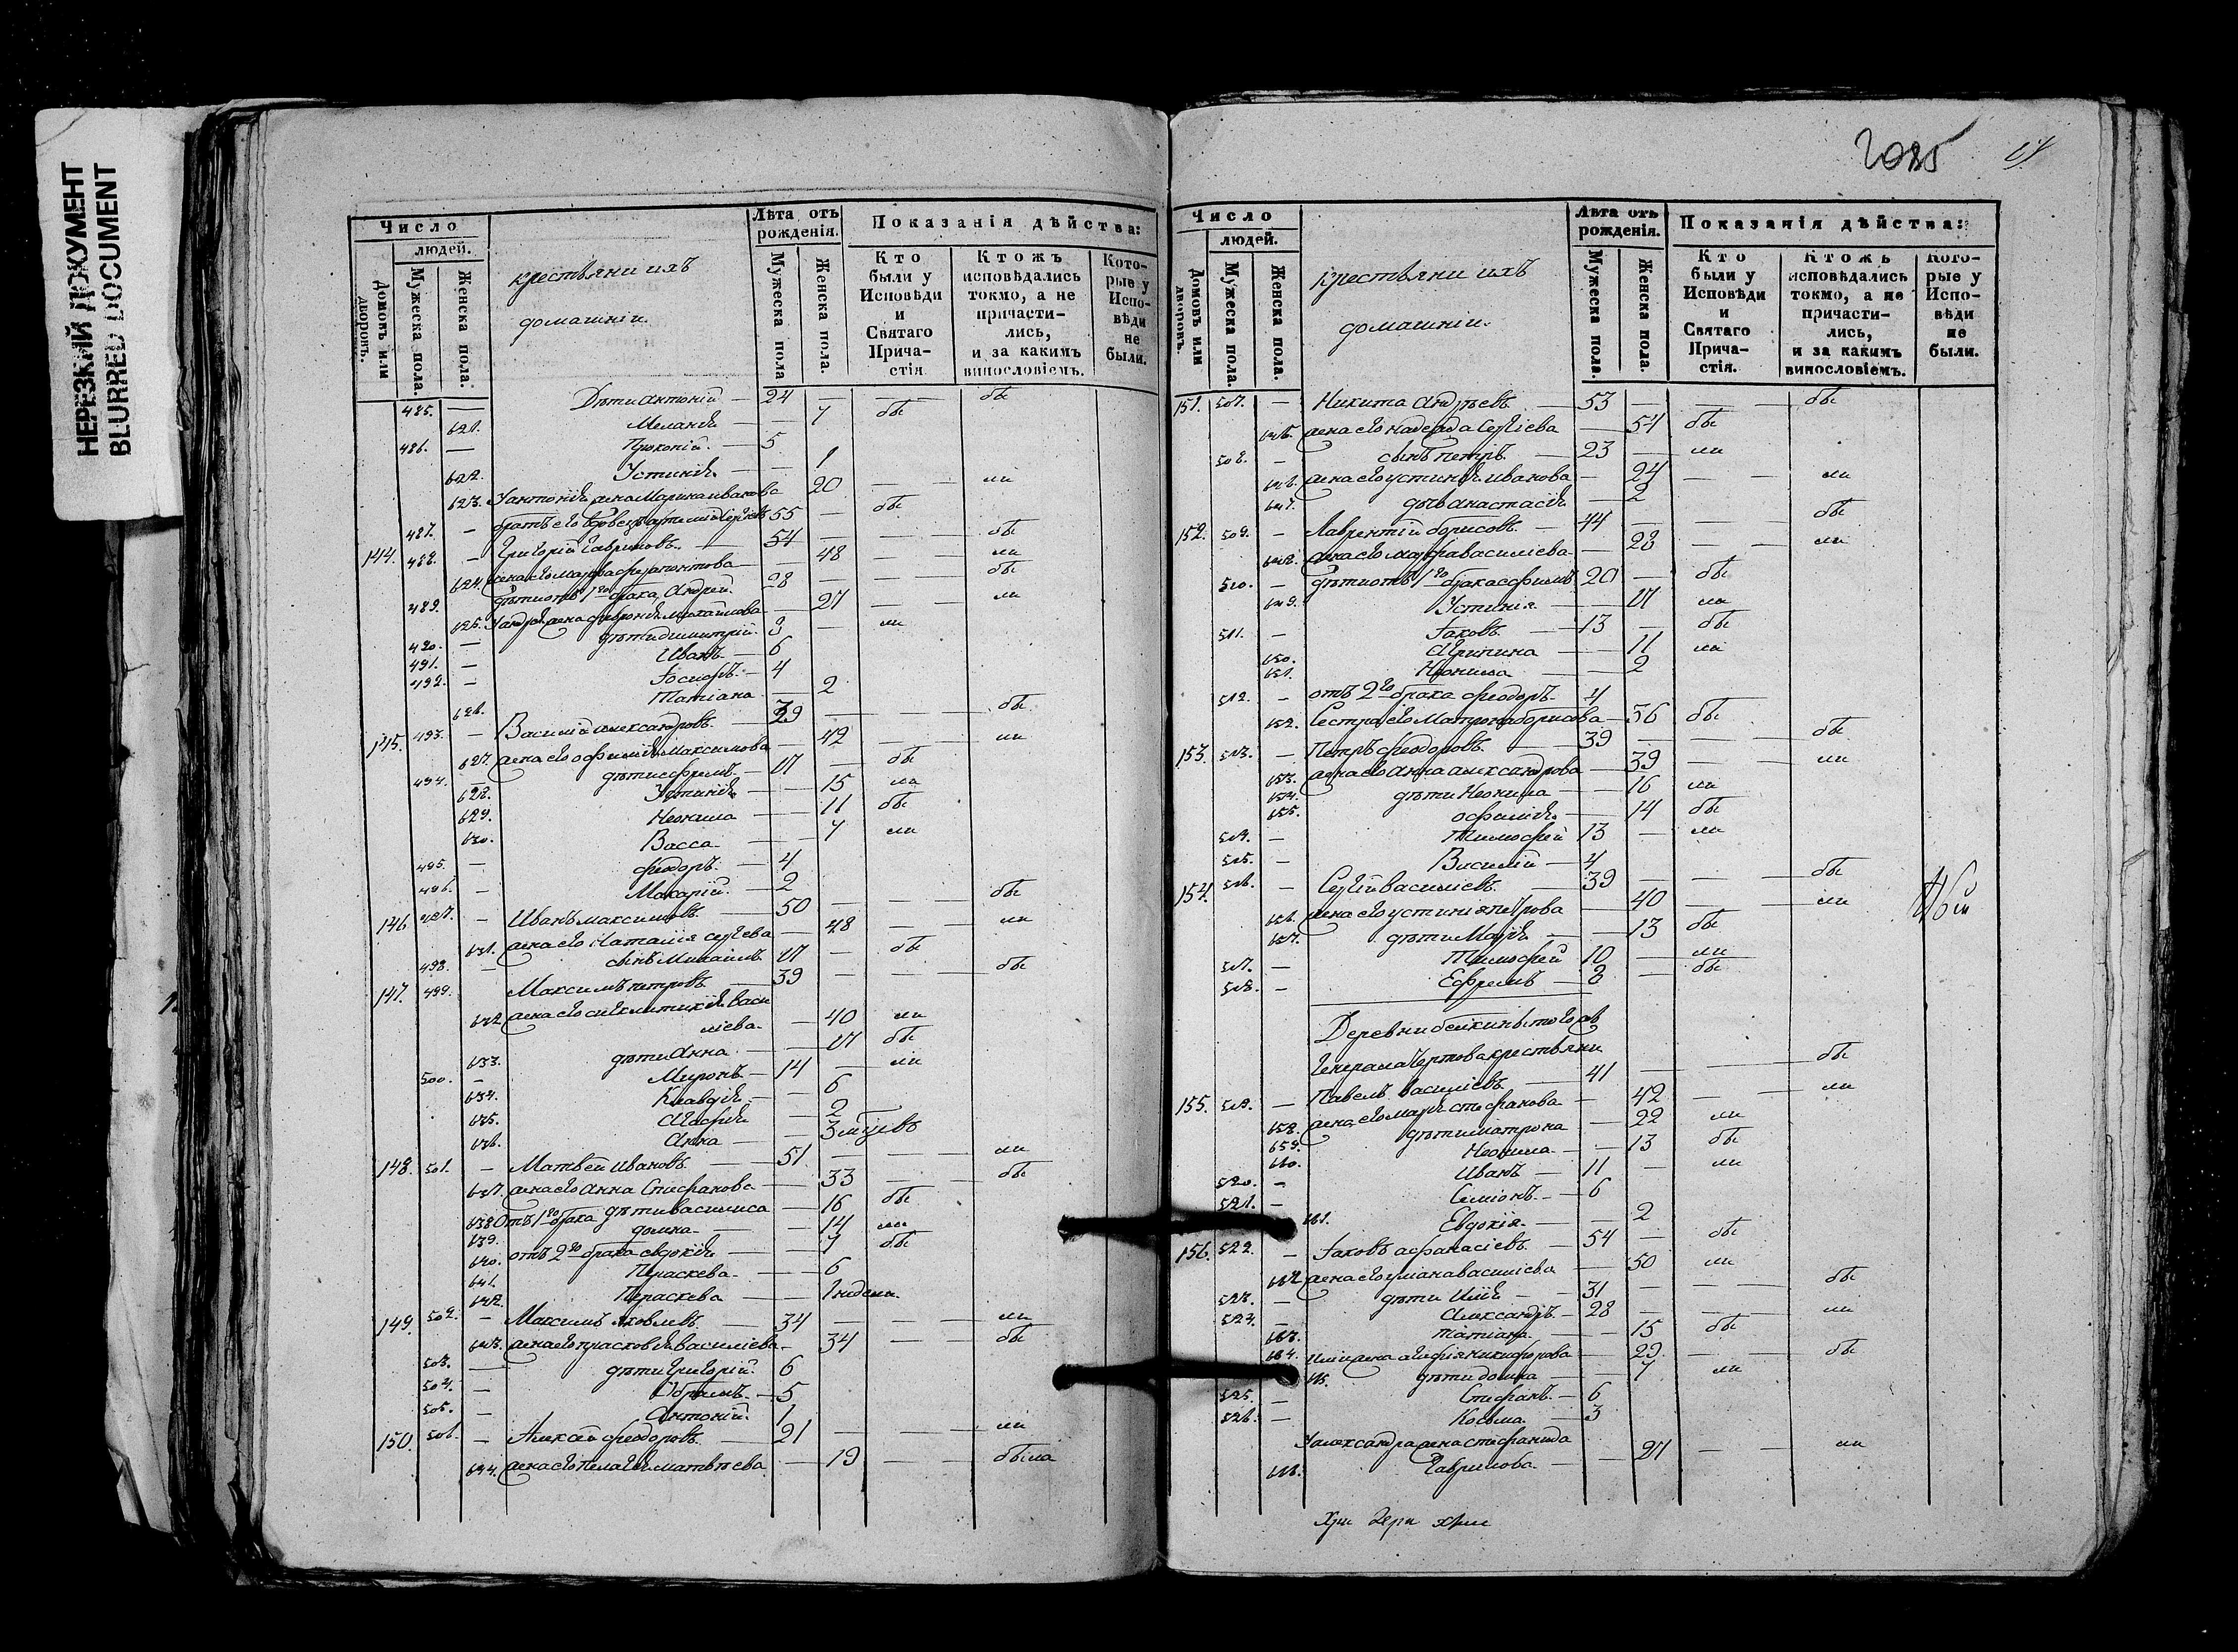 НЕРЕЗКИЙ ДОКУМЕНТ
BLURRED DOCUMENT
Число
людей.
Домовъ или дворовъ.
Мужеска пола.
Женска пола.
крестьяни ихъ
домашніи.
Лѣта отъ рожденія.
Мужеска пола
Женска пола.
Показанія дѣйства:
Кто были у Исповѣди и Святаго Прича-стія
Ктожъ исповѣдались токмо, а не причасти-лись, и за какимъ винословіемъ.
Кото-рые у Испо-вѣди не были.
485. — Дѣти Антоній — 24 — — бы
621. Меланія — — 7 бы
486. — Прокопій. — 5
622. Устинія — — 1
623. У антонія жена Марина иванова 20 — — ли
487. — братъ его вдовецъ артемій Сергѣевъ 55 — бы
144. 488. — Григорій Гавриловъ. — 54 — — бы
624. жена его марфа ферапонтова — — 48 — ли
489. дѣти отъ 1го брака Андрей. 28 — — бы
625. У андрея жена феврония михаилова — 27 — ли
490. — дѣти димитрій. 8 — ли
491. — Иванъ. — 6
492. — Іосифъ. — 4
626. Татіана — — 2
145. 493. — Василій александровъ. — 39 — — бы
627. жена его офимія максимова — 42 — ли
494. дѣти ефремъ — 17 — бы
628. Устинія — — 15 ли
629. Неонила — — 11 бы
630. Васса — — 7 ли
495. — феодоръ. — 4
496. — Макарій. — 2
146 497. — Иванъ максимовъ. — 50 — — бы
631. жена его Наталія сергѣева — 48 — ли
498. — сынъ Михаилъ 17 — бы
147. 499. Максимъ петровъ — 39 — — бы
632 жена его синклитикія васи
ліева — — 40 ли
633. дѣти Анна — — 17 бы
500. — Миронъ — 14 — ли
634. Клавдія — — 6
635. Агафія — 2
636. Анна — — 3 мцовъ
148. 501. — Матвей ивановъ. — 51 — — ли
637. жена его Анна Стефанова — 33 — бы
638 Отъ 1го брака дѣти василиса — 16 бы
639. домна — — 14 ли
640. отъ 2го брака евдокія — — 7 бы
641. Параскева. — — 6
642. Параскева — — 1 недели.
149. 502. — Максимъ Яковлевъ. — 34 — — ли
643. жена его прасковья василіева — 34 — бы
503. — дѣти Григорій. 6
504. — Абрамъ. — 5
505. — Антоній. 1
150. 506. — Алексѣй феодоровъ. — 21 — — ли
644. жена его Пелагія матвѣева — 19 — была
2085
Число
людей.
Домовъ или дворовъ.
Мужеска пола.
Женска пола.
крестьяни ихъ
домашніи.
Лѣта отъ рожденія.
Мужеска пола.
Женска пола.
Показанія дѣйства:
Кто были у Исповѣди и Святаго Прича-стія.
Ктожъ исповѣдались токмо, а не причасти-лись, и за какимъ винословіемъ.
Кото-рые у Испо-вѣди не были.
151. 507. — Никита Андрѣевъ — 53 — — бы
645. жена его надежда Сергіева — 54 бы
508. — сынъ петръ — 23 — ли
646. жена его устинія иванова — 24 — ли
647. дочь анастасія — 2
152. 509. — Лаврентій борисовъ. — 44 — — бы
648. жена его марфа василіева — 28 — ли
510. — дѣти отъ 1го брака ефимъ 20 — бы
649. Устинія — — 17 ли
511. — Іаковъ — 13 — бы
650. Агрипина — — 11 ли
651. Неонила — — 2
512. — отъ 2го брака феодоръ — 4
652. Сестра его Матрона борисова — 36 бы
153. 513. — Петръ феодоровъ. — 39 — — бы
653. жена его анна александрова — 39 — ли
654. дѣти Неонила — — 16 ли
655. офимія — 14 бы
514. — Тимофей 13 — ли
515. — Василій — 4
154. 516. — Сергій василіевъ. — 39 — — бы
656. жена его устинія петрова — 40 — ли
657. дѣти Марія — — 13 бы
517. — Тимофей 10 — ли
518. — Ефремъ — 8 — бы
Генерала Чортова крестьяни
155. 519. — Павелъ василіевъ — 41 — — бы
658. жена его марія стефанова — 42 — ли
659. дѣти матрона — 22 ли
660. Неонила — — 13 бы
520. — Иванъ — 11 — ли
521. — Симіонъ. — 6
661. Евдокія. — — 2
156. 522. — Іаковъ афанасіевъ — 54 — бы
662 жена его уліана василіева — 50 ли
523. — дѣти Илія — 31 — — бы
524. — Александръ. — 28 — — ли
663. татіана — — 15 бы
664. Иліи жена агафія никифорова — 29 — бы
665. дѣти домна — 7 ли
525. — Стефанъ. — 6
526. — Косьма — 3
У александра жена стефанида
666. Гаврилова. — — 27 — ли